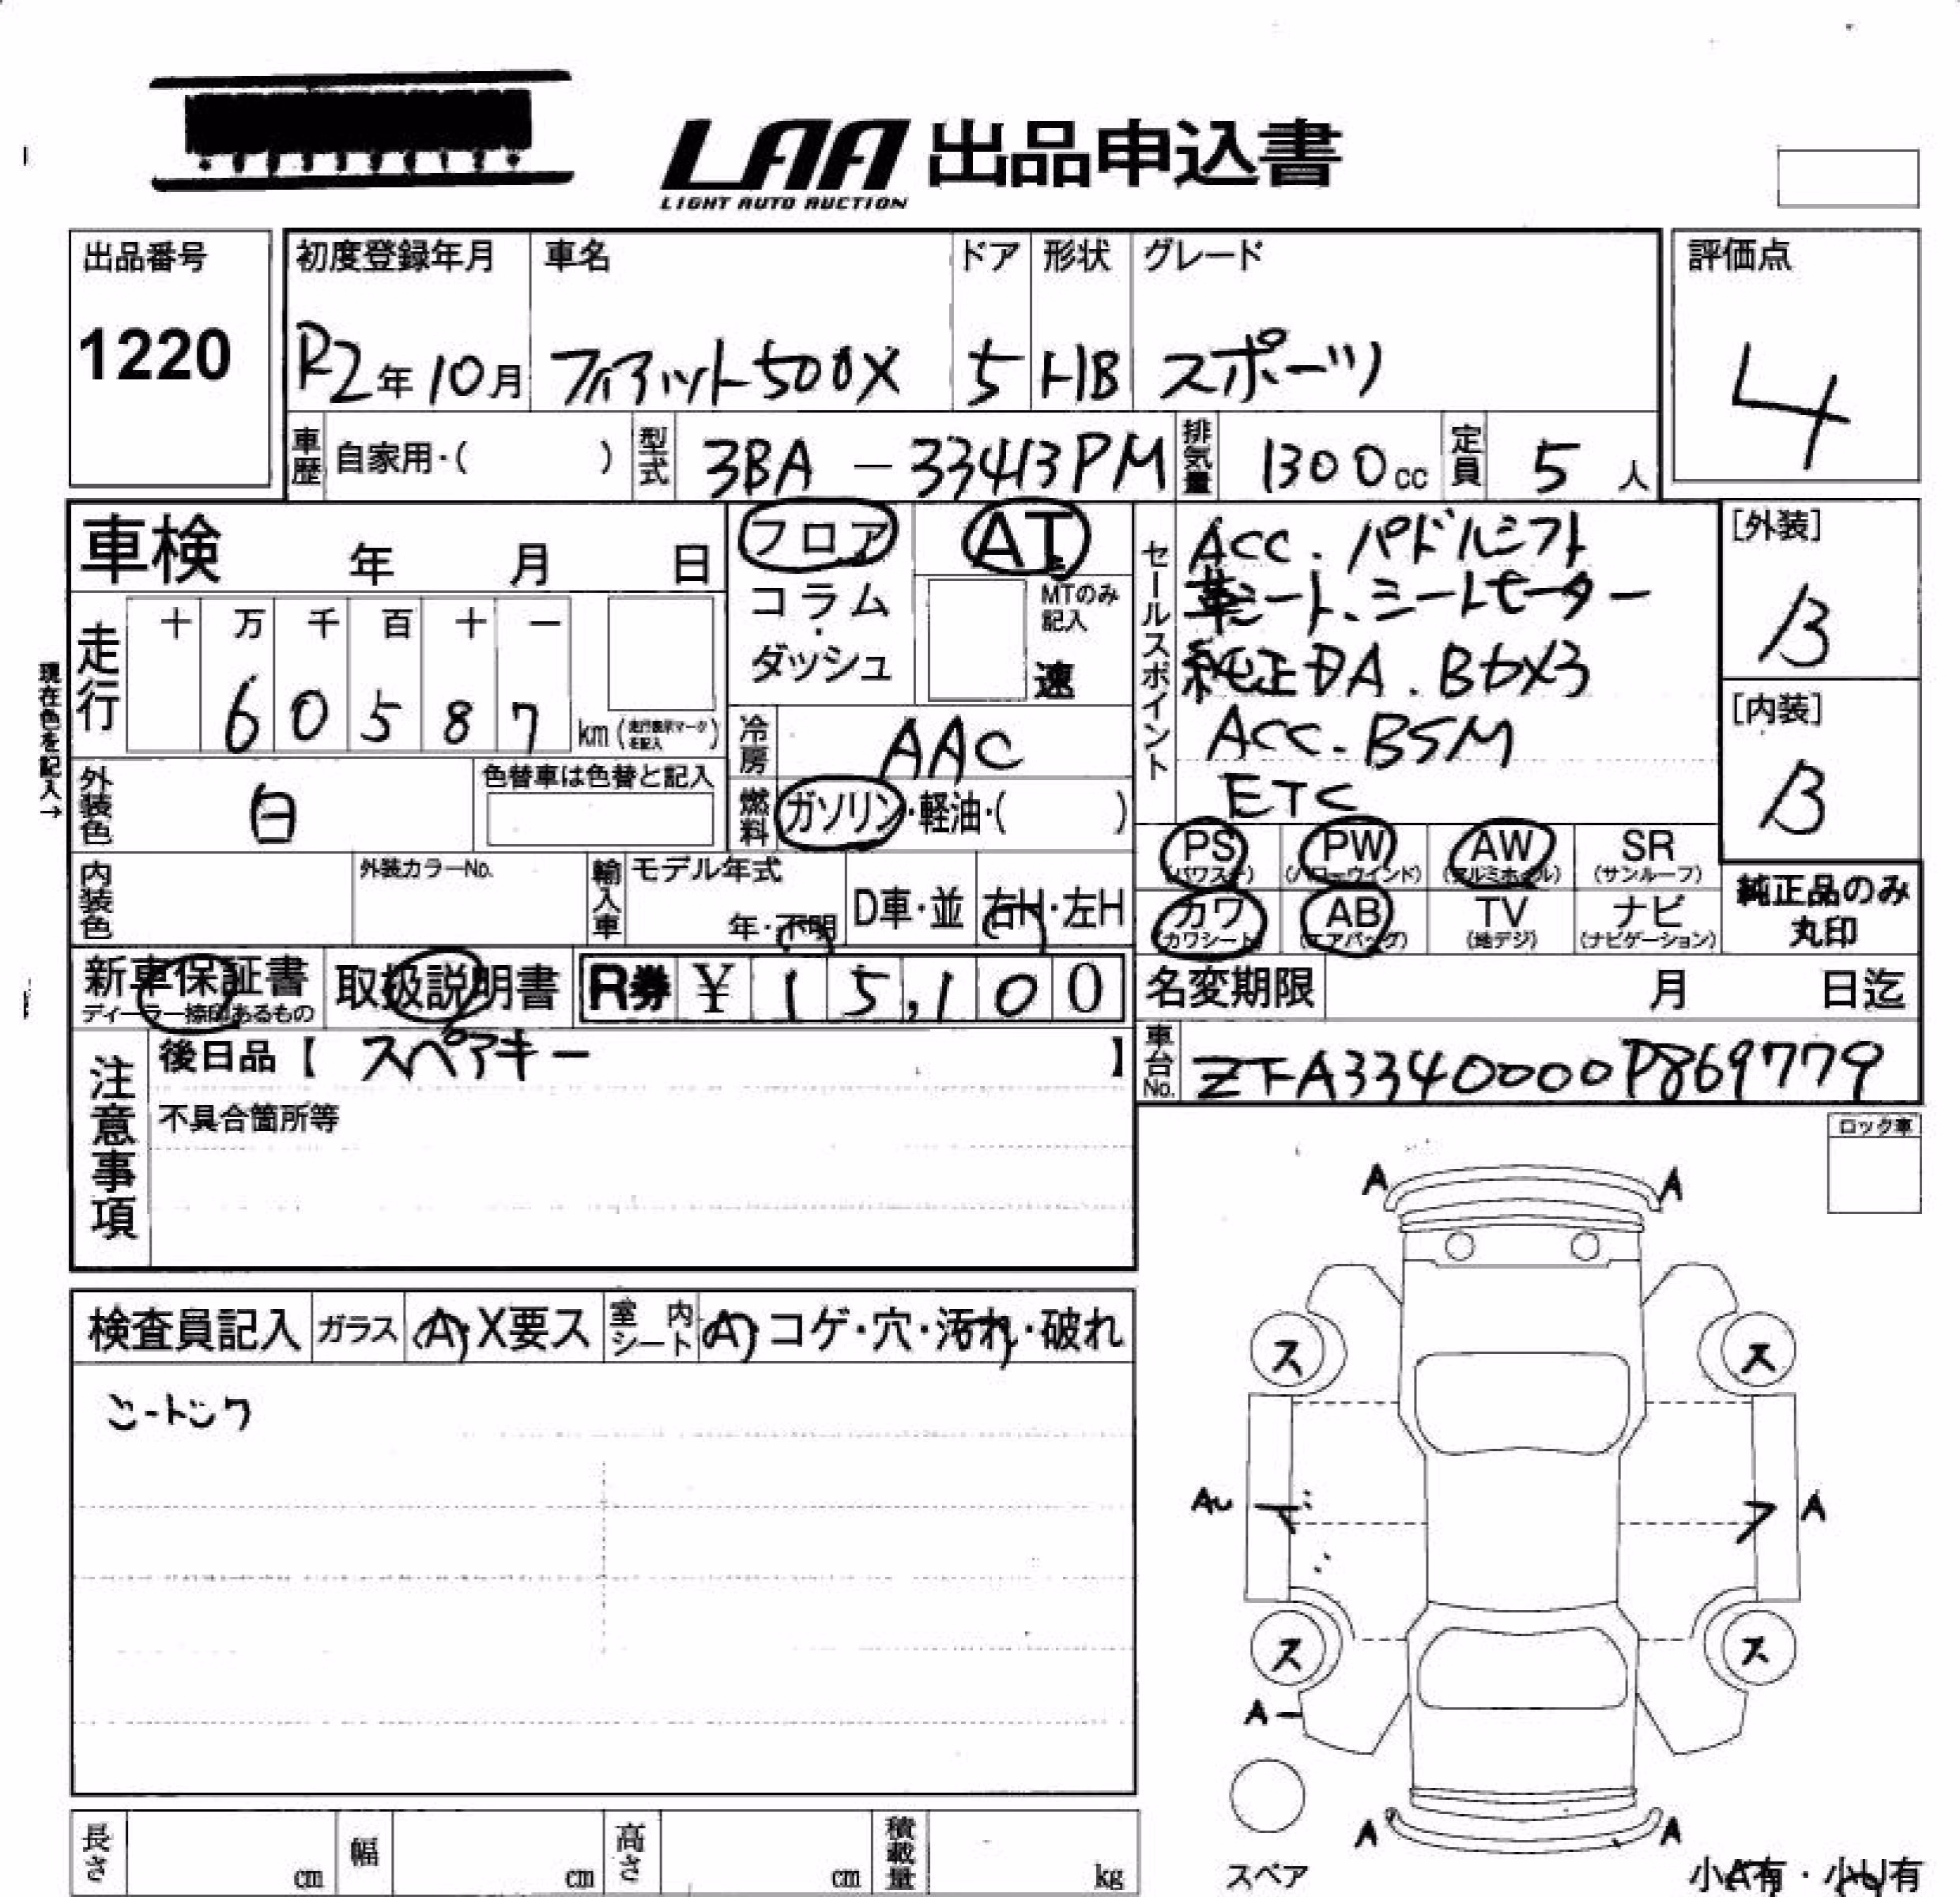 LAA 出品申込書
LIGHT AUTO AUCTION
出品番号
1220
初度登録年月
R2年10月
車名
フィアット500X
ドア
5
形状
HB
グレード
スポーツ
評価点
4
車歴 自家用・( )
型式 3BA - 33413PM
排気量 1300cc
定員 5人
車検 年 月 日
フロア
コラム
・
ダッシュ
AT
MTのみ
記入
速
セールスポイント
ACC. パドルシフト
革シート、シートモーター
純正DA.
ACC. BSM
ETC
[外装]
B
[内装]
B
現在色を記入→
走行
十 万 千 百 十 一
6 0 5 8 7 km
冷房 AAC
外装色 白
色替車は色替と記入
燃料 ガソリン・軽油・( )
内装色
外装カラーNo.
輸入車
モデル年式
年・不明
D車・並
右H・左H
PS
(パワステ)
PW
(パワーウインド)
AW
(アルミホイル)
SR
(サンルーフ)
カワ
(カワシート)
AB
(エアバッグ)
TV
(地デジ)
ナビ
(ナビゲーション)
純正品のみ
丸印
新車保証書
ディーラー捺印あるもの
取扱説明書
R券 ¥ 15,100
名変期限 月 日迄
注意事項
後日品【 スペアキー 】
不具合箇所等
車台No. ZFA3340000P869779
ロック車
検査員記入
ガラス A・X要ス
室内シート A・コゲ・穴・汚れ・破れ
A A
ス ス
A
ス ス
A
A A
スペア
小A有・小U有
長さ cm
幅 cm
高さ cm
積載量 kg